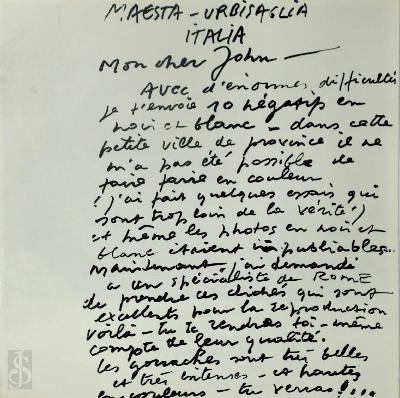 MAESTA - URBISAGLIA
ITALIA
Mon cher John -
AVEC d'énormes difficultés
je t'envoie 10 négatifs en
noir et blanc - dans cette
petite ville de province il ne
m'a pas été possible de
faire faire en couleur
(j'ai fait quelques essais qui
sont trop loin de la vérité!)
et même les photos en noir et
blanc étaient impubliables...
maintenant j'ai demandé
a un spécialiste de ROME
de prendre ces clichés qui sont
excellents pour la reproduction
voilà - tu te rendras toi-même
compte de leur qualité.
les gouaches sont très belles
et très intenses - et hautes
en couleurs - tu verras!...